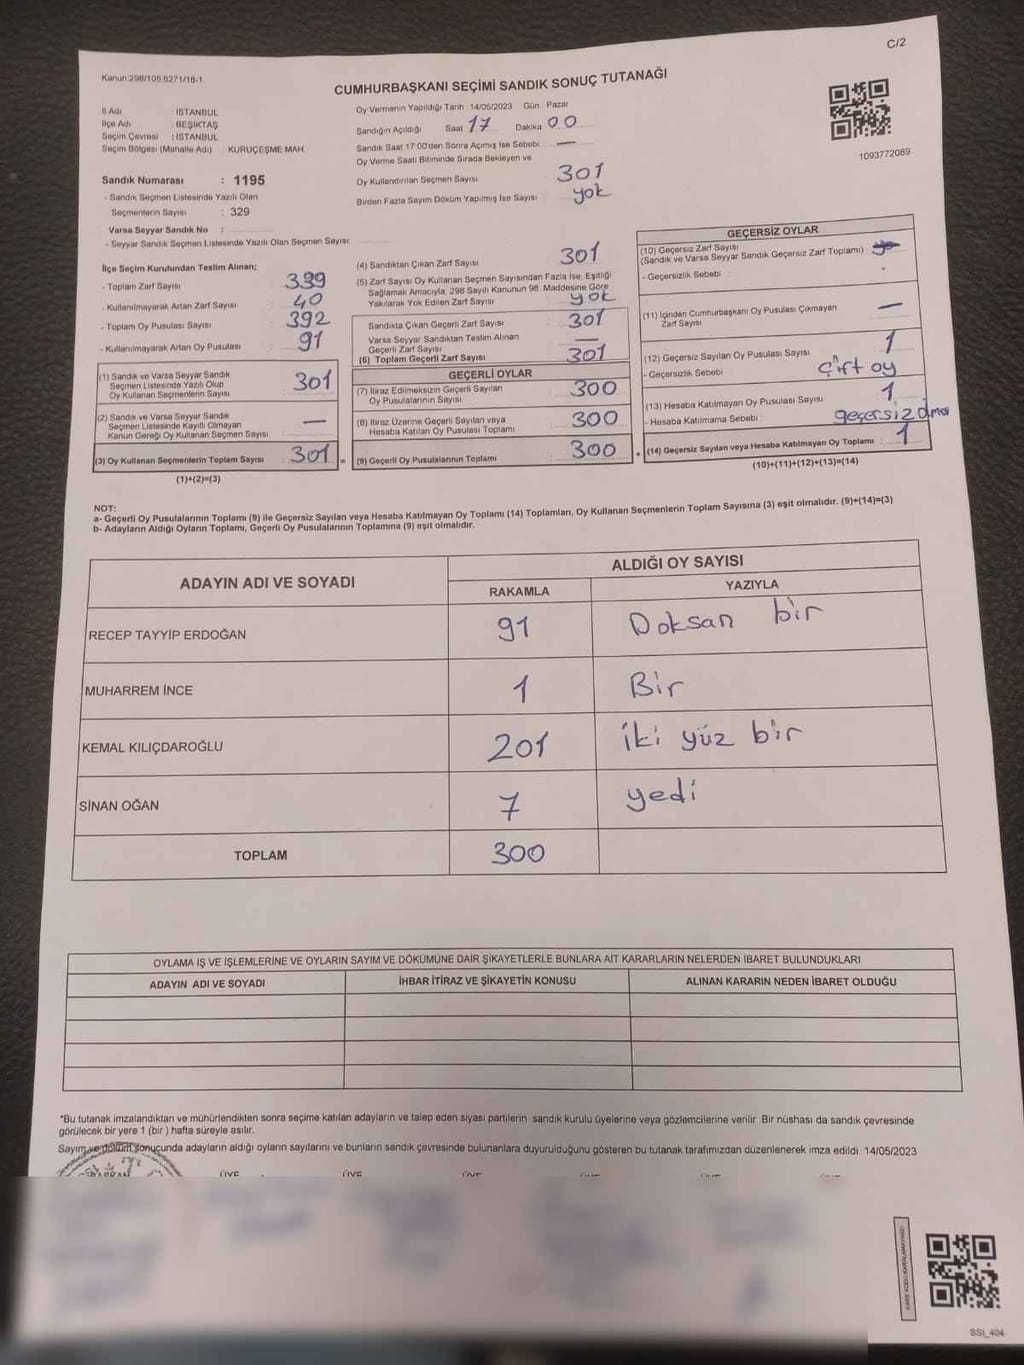 C/2
Kanun:298/105 6271/16-1
CUMHURBAŞKANI SEÇİMİ SANDIK SONUÇ TUTANAĞI
İl Adı : İSTANBUL
İlçe Adı : BEŞİKTAŞ
Seçim Çevresi : İSTANBUL
Seçim Bölgesi (Mahalle Adı) : KURUÇEŞME MAH.
Oy Vermenin Yapıldığı Tarih 14/05/2023 Gün Pazar
Sandığın Açıldığı Saat 17 Dakika 00
Sandık Saat 17:00'den Sonra Açılmış İse Sebebi —
Oy Verme Saati Bitiminde Sırada Bekleyen ve
Oy Kullandırılan Seçmen Sayısı 301
Birden Fazla Sayım Döküm Yapılmış İse Sayısı yok
1093772089
Sandık Numarası : 1195
- Sandık Seçmen Listesinde Yazılı Olan
Seçmenlerin Sayısı : 329
Varsa Seyyar Sandık No :
- Seyyar Sandık Seçmen Listesinde Yazılı Olan Seçmen Sayısı:
İlçe Seçim Kurulundan Teslim Alınan;
- Toplam Zarf Sayısı 399
- Kullanılmayarak Artan Zarf Sayısı 40
- Toplam Oy Pusulası Sayısı 392
- Kullanılmayarak Artan Oy Pusulası 91
(1) Sandık ve Varsa Seyyar Sandık
Seçmen Listesinde Yazılı Olup
Oy Kullanan Seçmenlerin Sayısı 301
(2) Sandık ve Varsa Seyyar Sandık
Seçmen Listesinde Kayıtlı Olmayan
Kanun Gereği Oy Kullanan Seçmen Sayısı —
(3) Oy Kullanan Seçmenlerin Toplam Sayısı 301 =
(1)+(2)=(3)
(4) Sandıktan Çıkan Zarf Sayısı 301
(5) Zarf Sayısı Oy Kullanan Seçmen Sayısından Fazla İse, Eşitliği
Sağlamak Amacıyla, 298 Sayılı Kanunun 98. Maddesine Göre
Yakılarak Yok Edilen Zarf Sayısı yok
Sandıkta Çıkan Geçerli Zarf Sayısı 301
Varsa Seyyar Sandıktan Teslim Alınan
Geçerli Zarf Sayısı —
(6) Toplam Geçerli Zarf Sayısı 301
GEÇERLİ OYLAR
(7) İtiraz Edilmeksizin Geçerli Sayılan
Oy Pusulalarının Sayısı 300
(8) İtiraz Üzerine Geçerli Sayılan veya
Hesaba Katılan Oy Pusulası Toplamı 300
(9) Geçerli Oy Pusulalarının Toplamı 300 +
GEÇERSİZ OYLAR
(10) Geçersiz Zarf Sayısı
(Sandık ve Varsa Seyyar Sandık Geçersiz Zarf Toplamı) :
- Geçersizlik Sebebi :
(11) İçinden Cumhurbaşkanı Oy Pusulası Çıkmayan
Zarf Sayısı —
(12) Geçersiz Sayılan Oy Pusulası Sayısı 1
- Geçersizlik Sebebi : çift oy
(13) Hesaba Katılmayan Oy Pusulası Sayısı 1
- Hesaba Katılmama Sebebi : geçersiz olması
(14) Geçersiz Sayılan veya Hesaba Katılmayan Oy Toplamı : 1
(10)+(11)+(12)+(13)=(14)
NOT:
a- Geçerli Oy Pusulalarının Toplamı (9) ile Geçersiz Sayılan veya Hesaba Katılmayan Oy Toplamı (14) Toplamları, Oy Kullanan Seçmenlerin Toplam Sayısına (3) eşit olmalıdır. (9)+(14)=(3)
b- Adayların Aldığı Oyların Toplamı, Geçerli Oy Pusulalarının Toplamına (9) eşit olmalıdır.
ADAYIN ADI VE SOYADI
ALDIĞI OY SAYISI
RAKAMLA YAZIYLA
RECEP TAYYİP ERDOĞAN 91 Doksan bir
MUHARREM İNCE 1 Bir
KEMAL KILIÇDAROĞLU 201 İki yüz bir
SİNAN OĞAN 7 yedi
TOPLAM 300
OYLAMA İŞ VE İŞLEMLERİNE VE OYLARIN SAYIM VE DÖKÜMÜNE DAİR ŞİKAYETLERLE BUNLARA AİT KARARLARIN NELERDEN İBARET BULUNDUKLARI
ADAYIN ADI VE SOYADI İHBAR İTİRAZ VE ŞİKAYETİN KONUSU ALINAN KARARIN NEDEN İBARET OLDUĞU
*Bu tutanak imzalandıktan ve mühürlendikten sonra seçime katılan adayların ve talep eden siyasi partilerin sandık kurulu üyelerine veya gözlemcilerine verilir. Bir nüshası da sandık çevresinde
görülecek bir yere 1 (bir) hafta süreyle asılır.
Sayım ve döküm sonucunda adayların aldığı oyların sayılarını ve bunların sandık çevresinde bulunanlara duyurulduğunu gösteren bu tutanak tarafımızdan düzenlenerek imza edildi. 14/05/2023
BAŞKAN ÜYE ÜYE ÜYE
KARE KODU KARALAMAYINIZ!
SSI_404